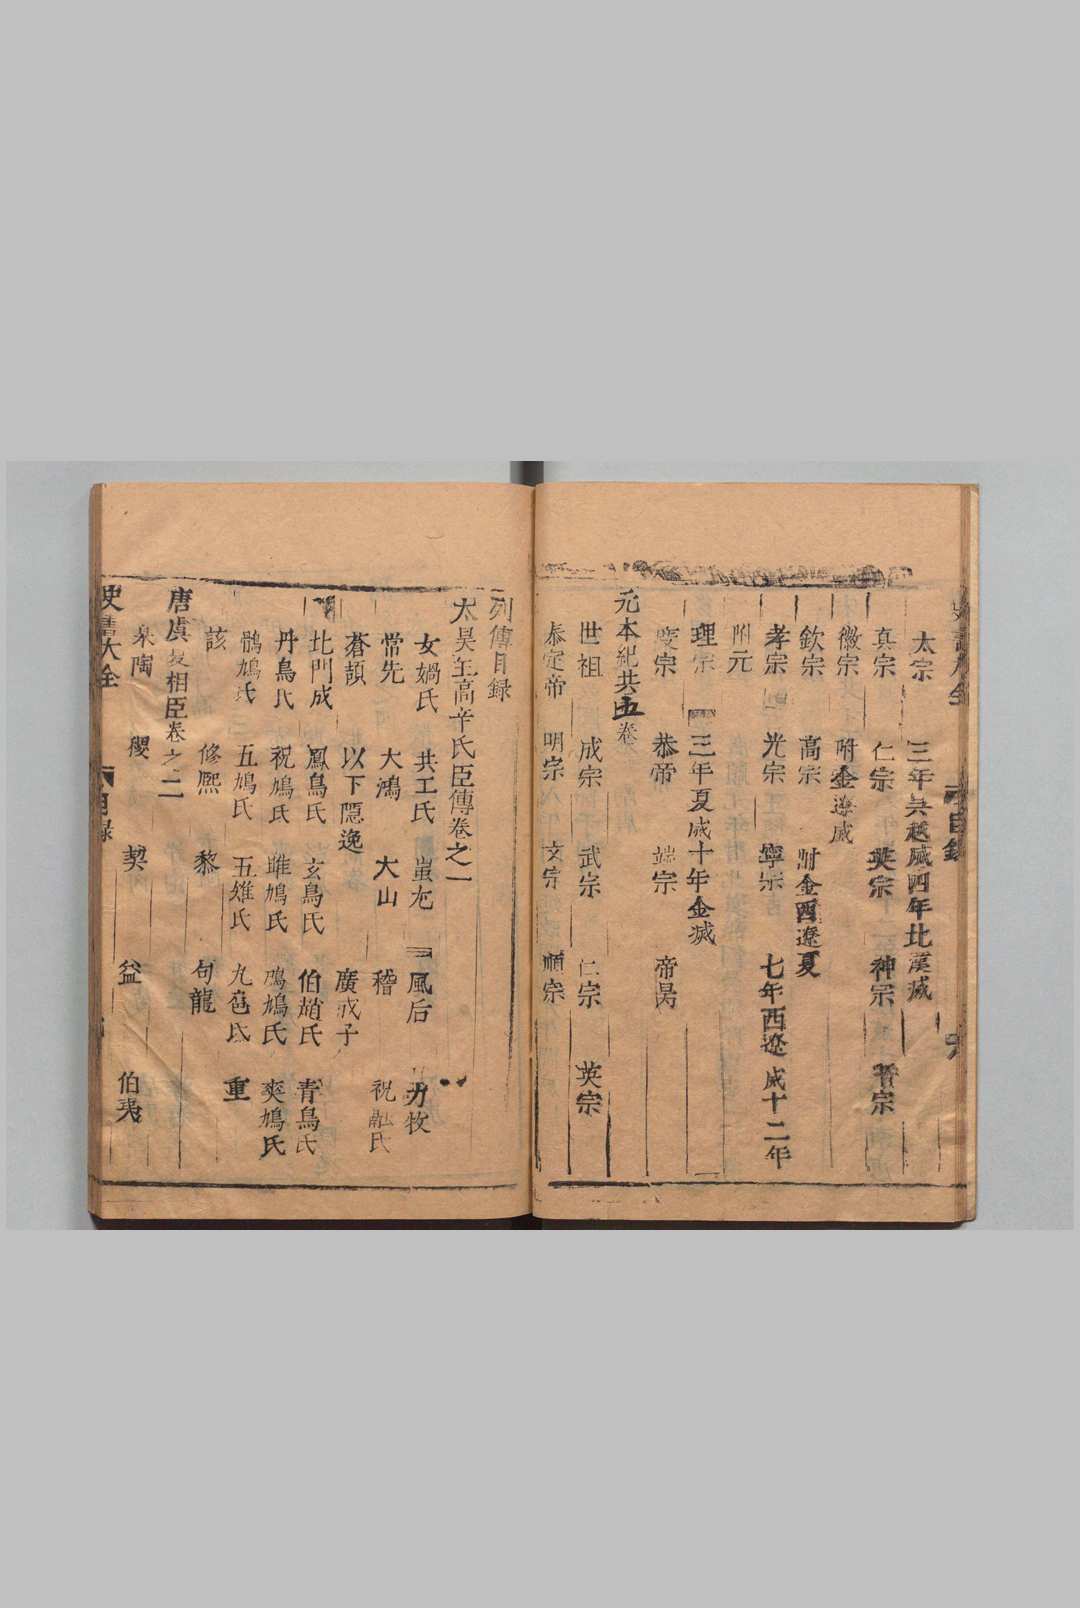 太宗 三年吳越滅四年北漢滅
真宗 仁宗 英宗 神宗 晢宗
徽宗 附金遼滅
欽宗 高宗 附金西遼夏
孝宗 光宗 寧宗 七年西遼滅十二年
附元
理宗 三年夏滅十年金滅
度宗 恭帝 端宗 帝昺
元本紀共五卷
世祖 成宗 武宗 仁宗 英宗
泰定帝 明宗 文宗 順宗
列傳目録
太昊至高辛氏臣傳卷之一
女媧氏 共工氏 蚩尤 風后 力牧
常先 大鴻 大山 稽 祝融氏
蒼頡 以下隠逸 廣成子
北門成 鳳鳥氏 玄鳥氏 伯趙氏 青鳥氏
丹鳥氏 祝鳩氏 雎鳩氏 鳲鳩氏 爽鳩氏
鶻鳩氏 五鳩氏 五雉氏 九扈氏 重
該 修熈 黎 句龍
唐虞 相臣卷之二
皋陶 稷 契 益 伯夷
史書大全 目録